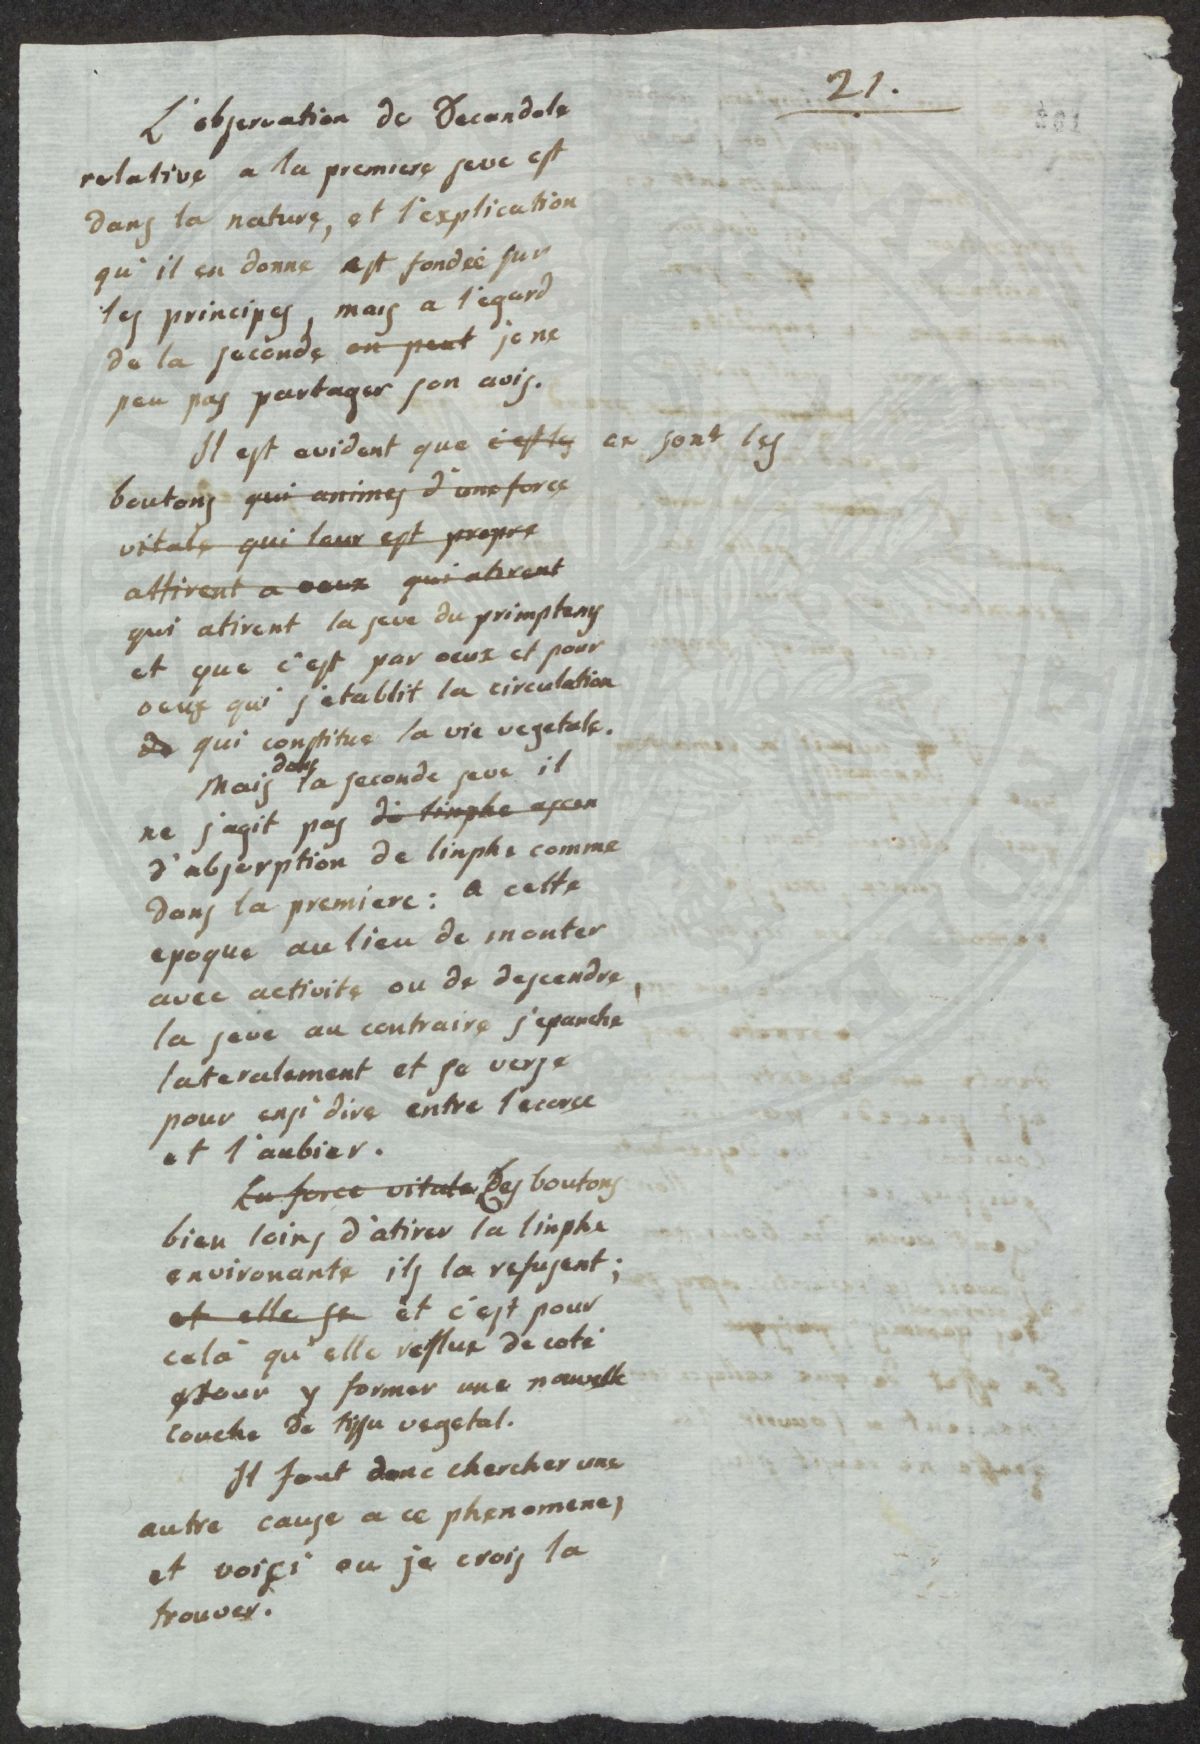 21.
L'observation de Decandole
relative a la premiere seve est
dans la nature, et l'explication
qu'il en donne est fondée sur
les principes, mais a l'egard
de la seconde on peut je ne
peu pas partager son avis.
Il est evident que c'est les ce sont les
boutons qui animes d'une force
vitale qui leur est propre
attirent a oeux qui atirent
qui atirent la seve du primptems
et que c'est par oeux et pour
oeux qui s'etablit la circulation
de qui constitue la vie vegetale.
Mais dans la seconde seve il
ne s'agit pas de linphe ascen
d'absorption de linphe comme
dans la premiere: a cette
epoque au lieu de monter
avec activite ou de descendre,
la seve au contraire s'epanche
lateralement et se verse
pour ensi dire entre l'ecorce
et l'aubier.
La force vitale Des boutons
bien loins d'atirer la linphe
environante ils la refusent;
et elle se et c'est pour
celà qu'elle reflue de coté
pour y former une nouvelle
couche de tissu vegetal.
Il faut donc chercher une
autre cause a ce phenomene,
et voiçi ou je crois la
trouver.